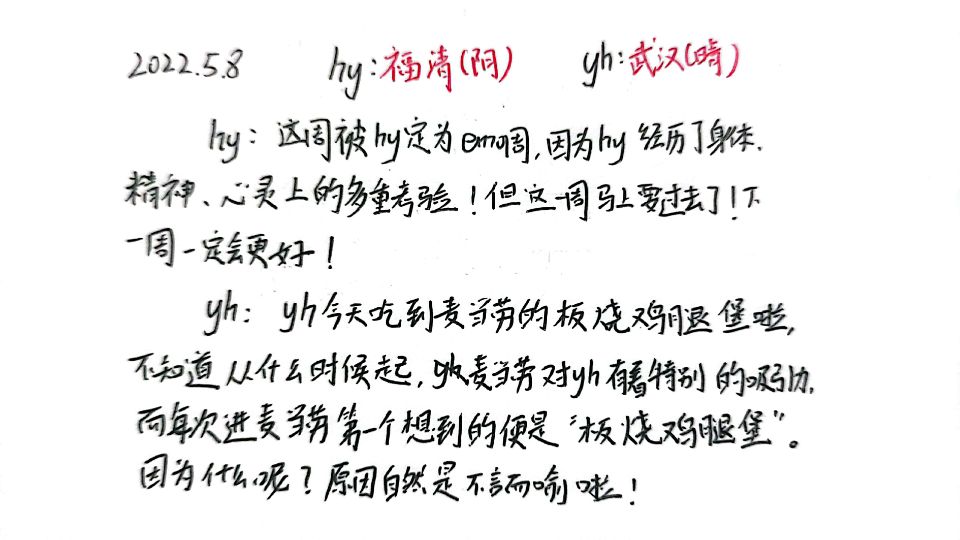 2022.5.8 hy:福清(阴) yh:武汉(晴)
hy: 这周被hy定为emo周,因为hy经历了身体、
精神、心灵上的多重考验!但这一周马上要过去了!下
一周一定会更好!
yh: yh今天吃到麦当劳的板烧鸡腿堡啦,
不知道从什么时候起,吃麦当劳对yh有着特别的吸引力,
而每次进麦当劳第一个想到的便是“板烧鸡腿堡”。
因为什么呢?原因自然是不言而喻啦!